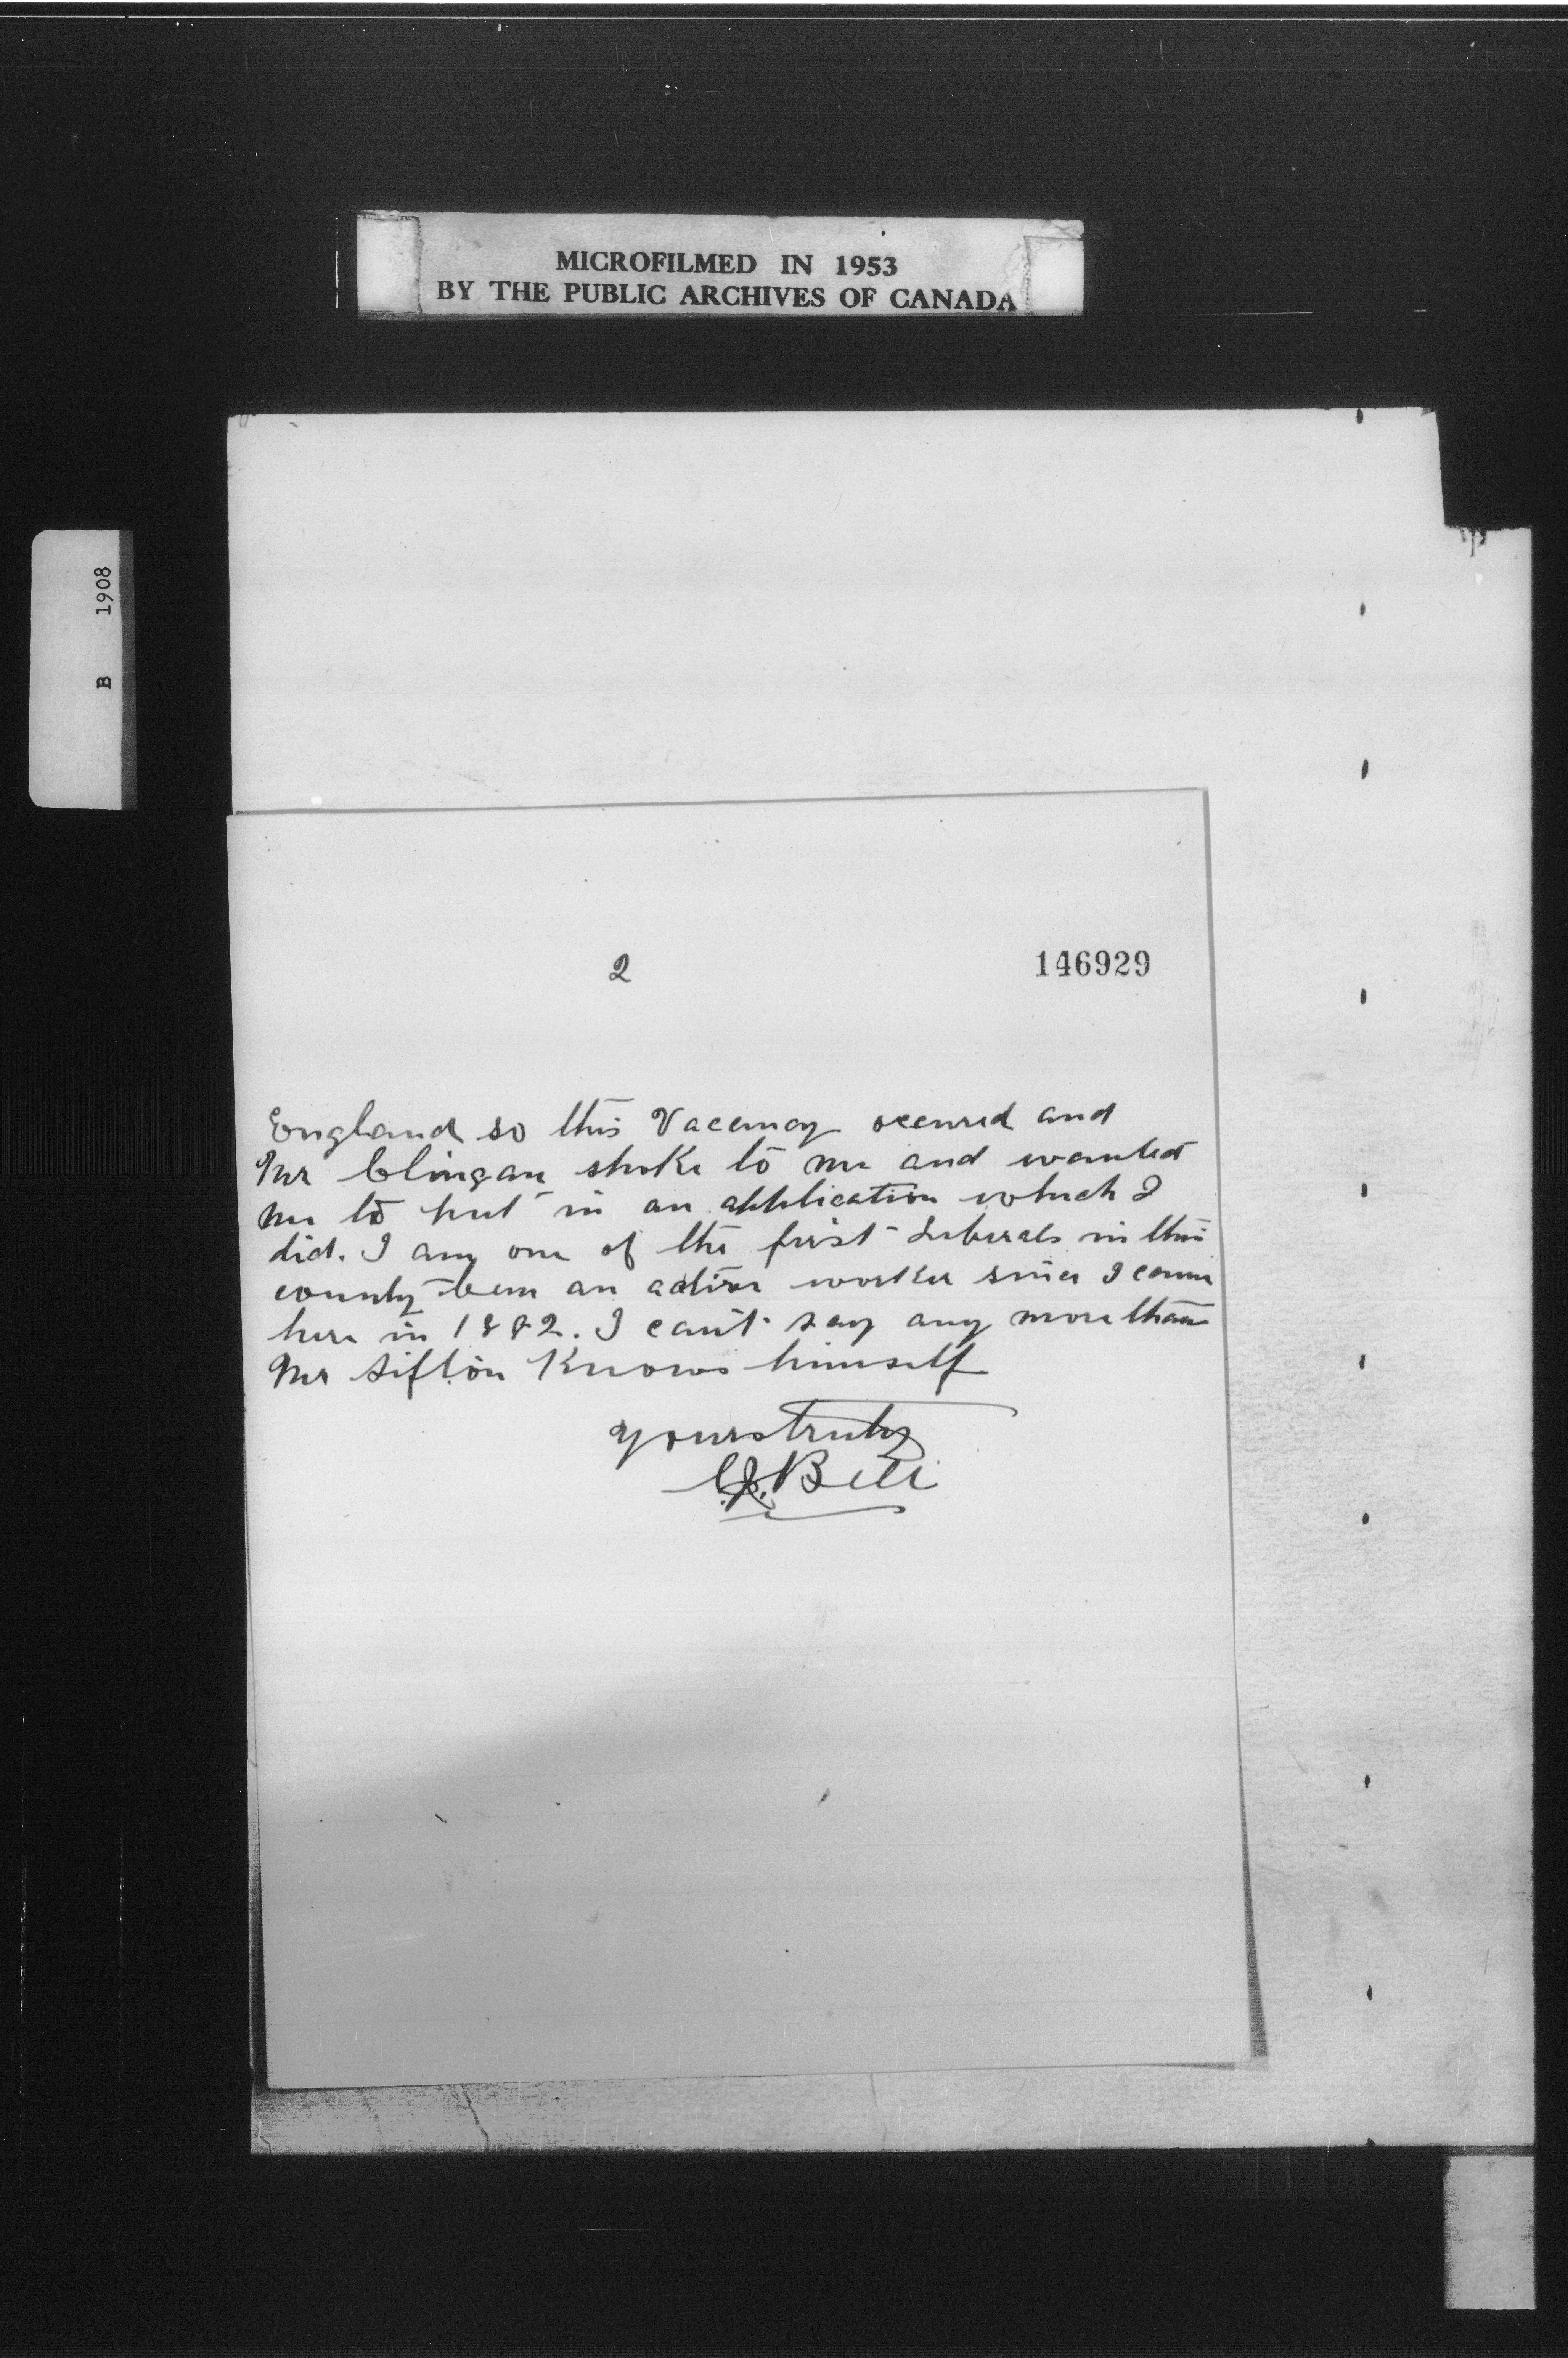 MICROFILMED IN 1953
BY THE PUBLIC ARCHIVES OF CANADA
B 1908
2
146929
England so this Vacancy occured and
Mr Clingan spoke to me and wanted
me to put in an application which I
did. I am one of the first Liberals in this
county been an active worker since I came
here in 1882. I can't say any more than
Mr Sifton Knows himself
yours truly
C.J. Bell